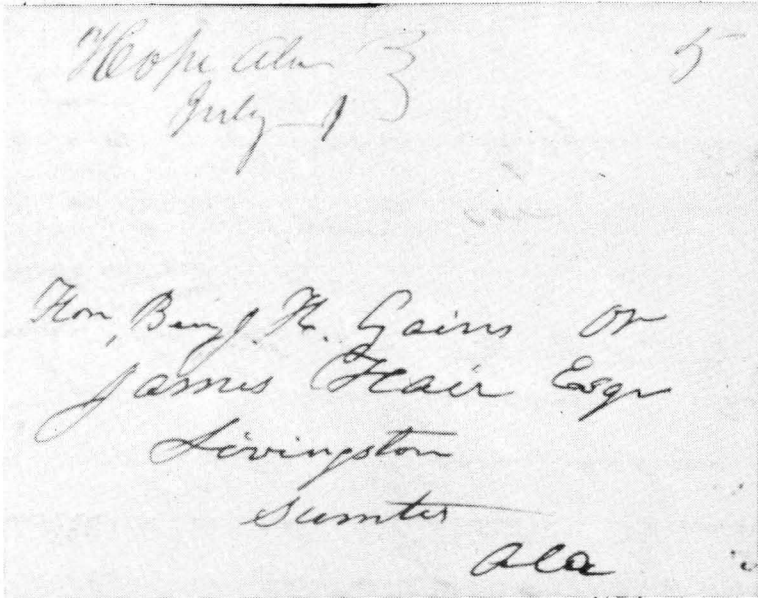 Hope Ala } 5
July 1
Hon, Benj. H. Gains or
James Hair Esqr
Livingston
Sumter
Ala